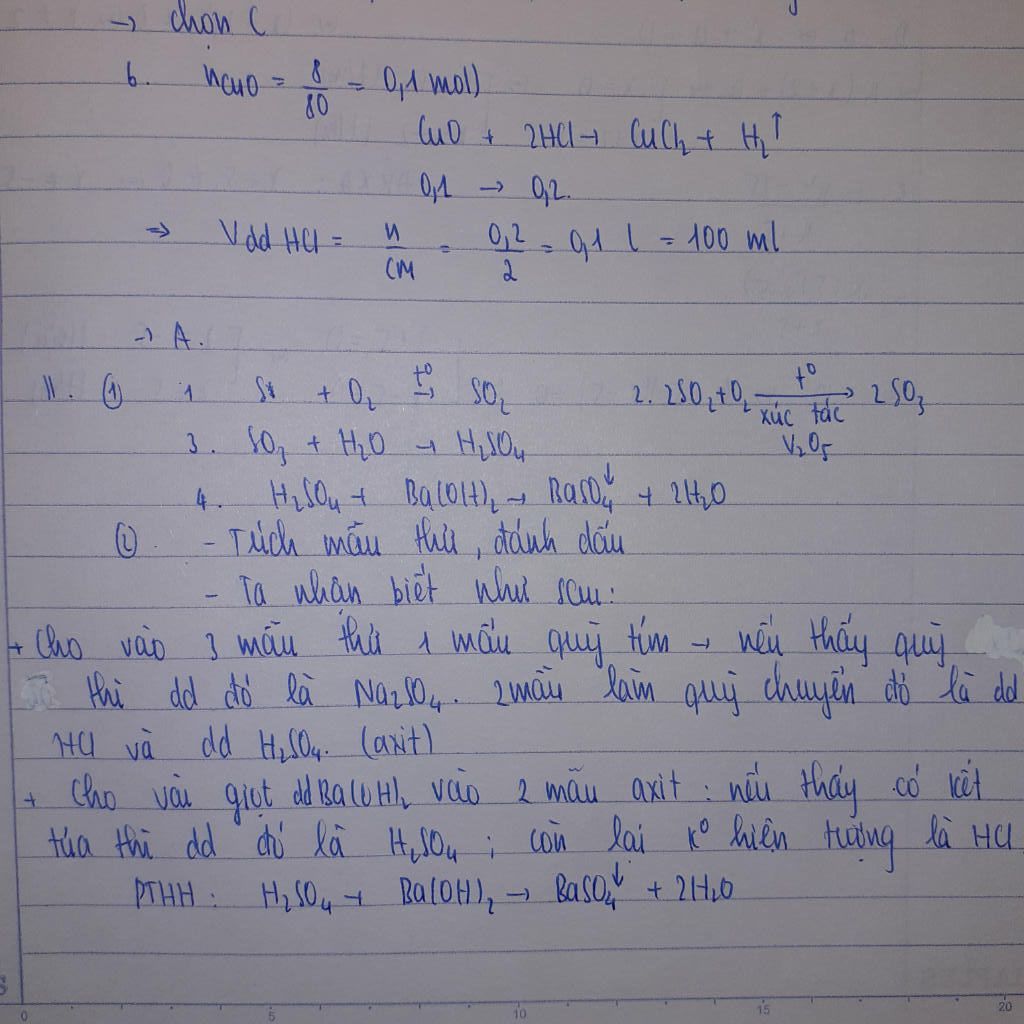 → chọn C
6. nCuO = 8/80 = 0,1 mol)
CuO + 2HCl → CuCl₂ + H₂↑
0,1 → 0,2.
⇒ Vdd HCl = n/CM = 0,2/2 = 0,1 l = 100 ml
→ A.
II. ① 1 S + O₂ t⁰→ SO₂ 2. 2SO₂+O₂ t⁰→ xúc tác V₂O₅ 2SO₃
3. SO₃ + H₂O → H₂SO₄
4. H₂SO₄ + Ba(OH)₂ → BaSO₄↓ + 2H₂O
② - Trích mẫu thử, đánh dấu
- Ta nhận biết như sau:
+ Cho vào 3 mẫu thử 1 mẩu quỳ tím → nếu thấy quỳ
thì dd đó là Na₂SO₄. 2 mẫu làm quỳ chuyển đỏ là dd
HCl và dd H₂SO₄. (axit)
+ Cho vài giọt dd Ba(OH)₂ vào 2 mẫu axit : nếu thấy có kết
tủa thì dd đó là H₂SO₄ ; còn lại k⁰ hiện tượng là HCl
PTHH : H₂SO₄ + Ba(OH)₂ → BaSO₄↓ + 2H₂O
0 5 10 15 20